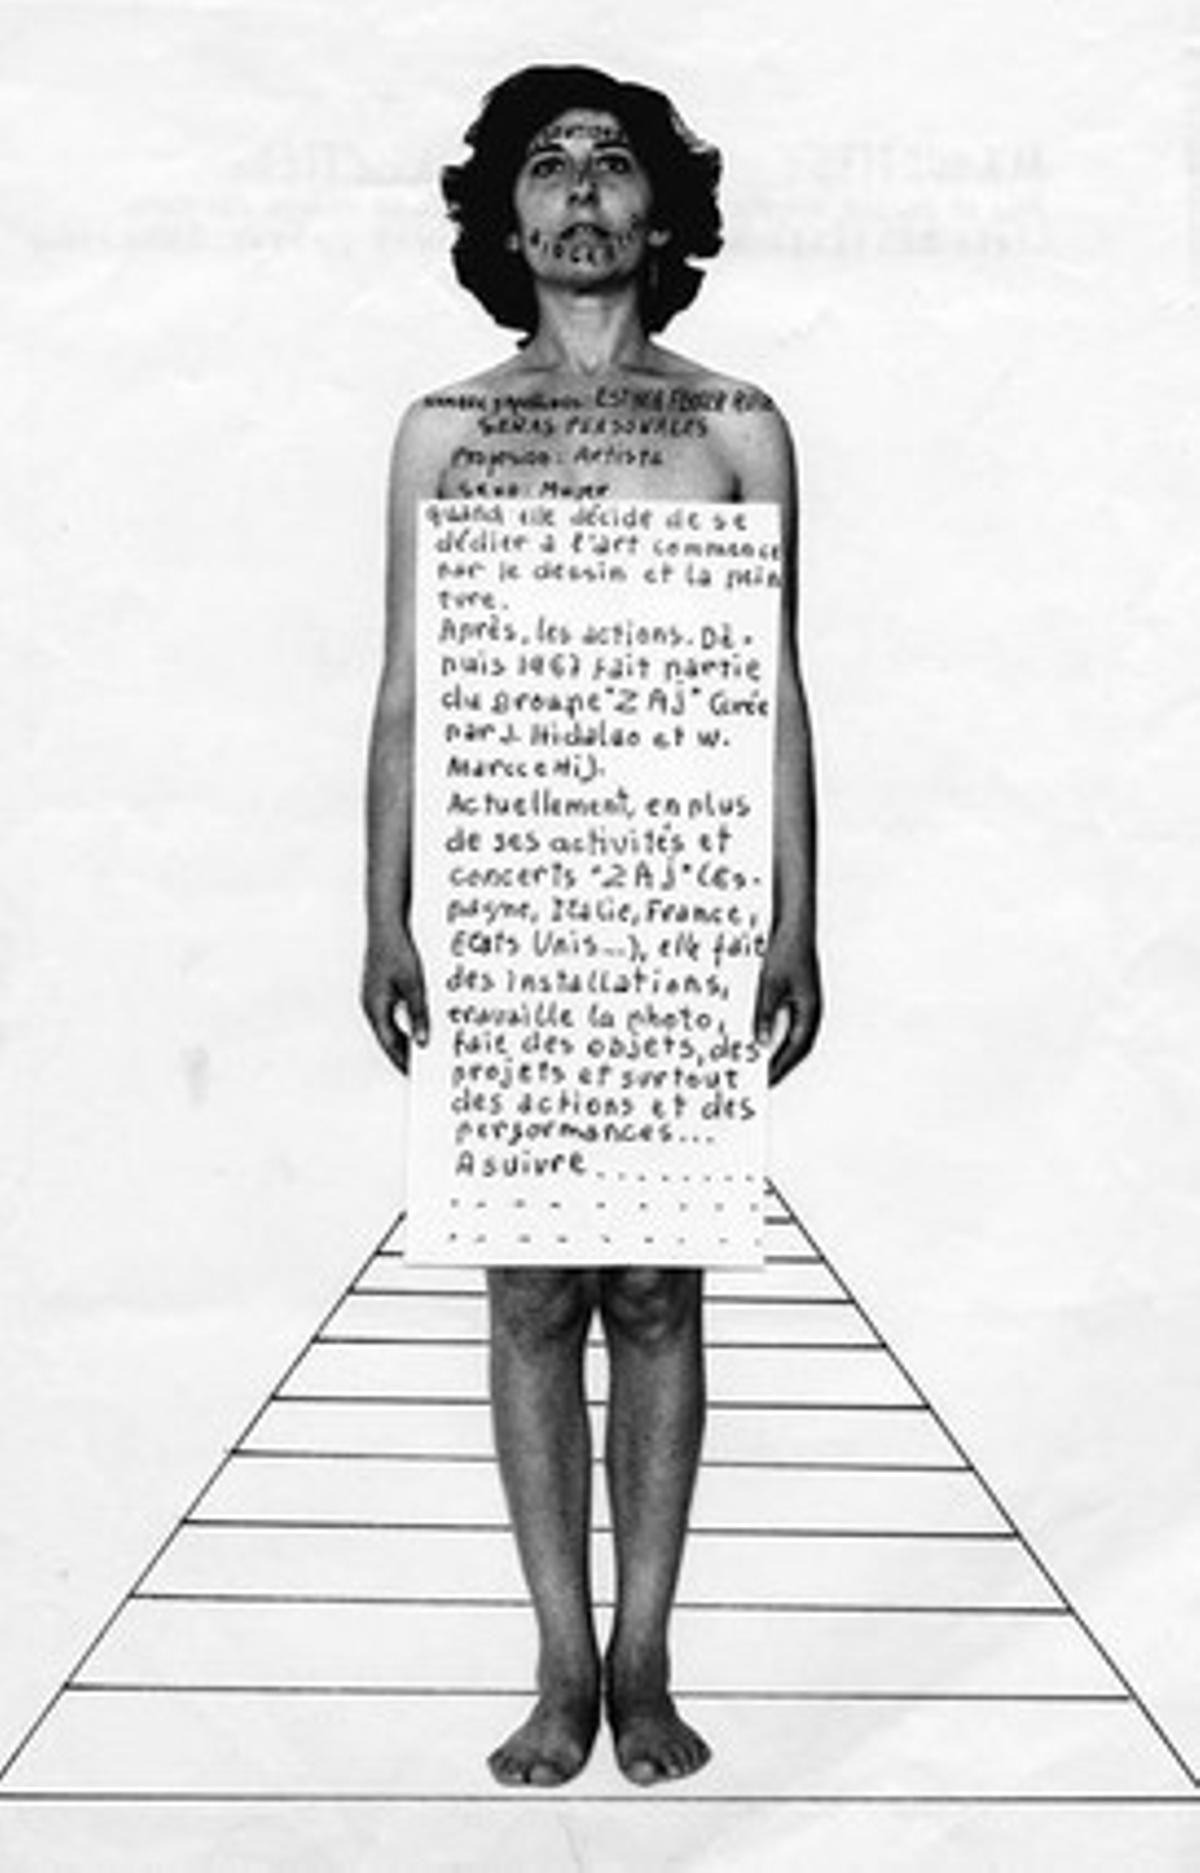 nombre y apellidos: ESTHER FERRER RUIZ
SEÑAS PERSONALES
Profesion: Artista
Sexo: Mujer
quand elle décide de se
dédier a l'art commence
par le dessin et la pein
ture.
Après, les actions. Dè-
puis 1967 fait partie
du groupe "ZAJ" (crée
par J. Hidalgo et W.
Marchetti).
Actuellement, en plus
de ses activités et
concerts "ZAJ" (Es-
pagne, Italie, France,
Etats Unis...), elle fait
des installations,
travaille la photo,
fait des objets, des
projets et surtout
des actions et des
performances...
A suivre.........